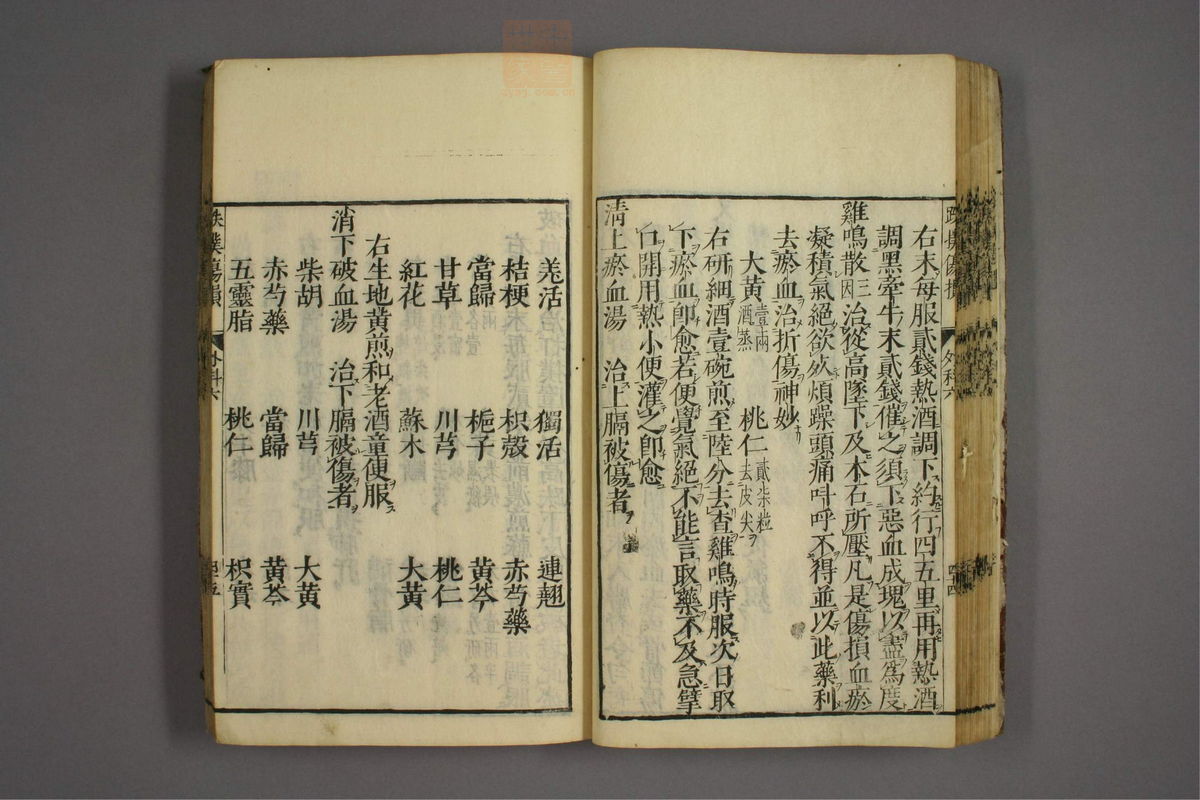 右末每服貳錢熱酒調下約行四五里再用熱酒
調黑牽牛末貳錢催之須下惡血成塊以盡為度
雞鳴散三因 治從高墜下及木石所壓凡是傷損血瘀
凝積氣絕欲死煩躁頭痛叫呼不得並以此藥利
去瘀血治折傷神妙
大黃壹兩酒蒸 桃仁貳柒粒去皮尖
右研細酒壹碗煎至陸分去查雞鳴時服次日取
下瘀血卽愈若便覺氣絕不能言取藥不及急擘
口開用熱小便灌之卽愈
清上瘀血湯 治上膈被傷者
羌活 獨活 連翹
桔梗 枳殼 赤芍藥
當歸 梔子 黃芩
甘草 川芎 桃仁
紅花 蘇木 大黃
右生地黃煎和老酒童便服
消下破血湯 治下膈被傷者
柴胡 川芎 大黃
赤芍藥 當歸 黃芩
五靈脂 桃仁 枳實
跌撲傷損 外科六 四五